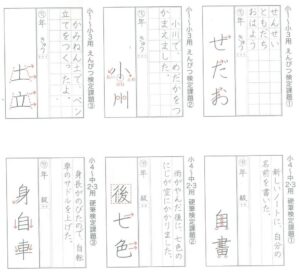 小1〜小3用 えんぴつ検定課題①
せんせい
ともだち
おはよう
年 きゅう
せだお
小1〜小3用 えんぴつ検定課題②
小川で、めだかをつ
かまえました。
年 きゅう
小川
小1〜小3用 えんぴつ検定課題③
かみねん土で、ペン
立てをつくったよ。
年 きゅう
土立
小4〜中2・3用 硬筆検定課題①
新しいノートに、自分の
名前を書いた。
年 級
自書
小4〜中2・3用 硬筆検定課題②
雨がやんだ後に、七色の
にじが空にかかりました。
年 級
後七色
小4〜中2・3用 硬筆検定課題③
身長がのびたので、自転
車のサドルを上げた。
年 級
身自車